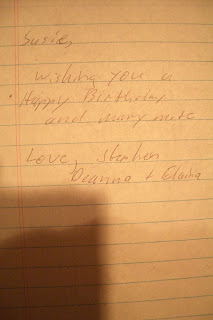 Susie,
wishing you a
Happy Birthday
and many more
Love, Stephen
Deanna + Elaina